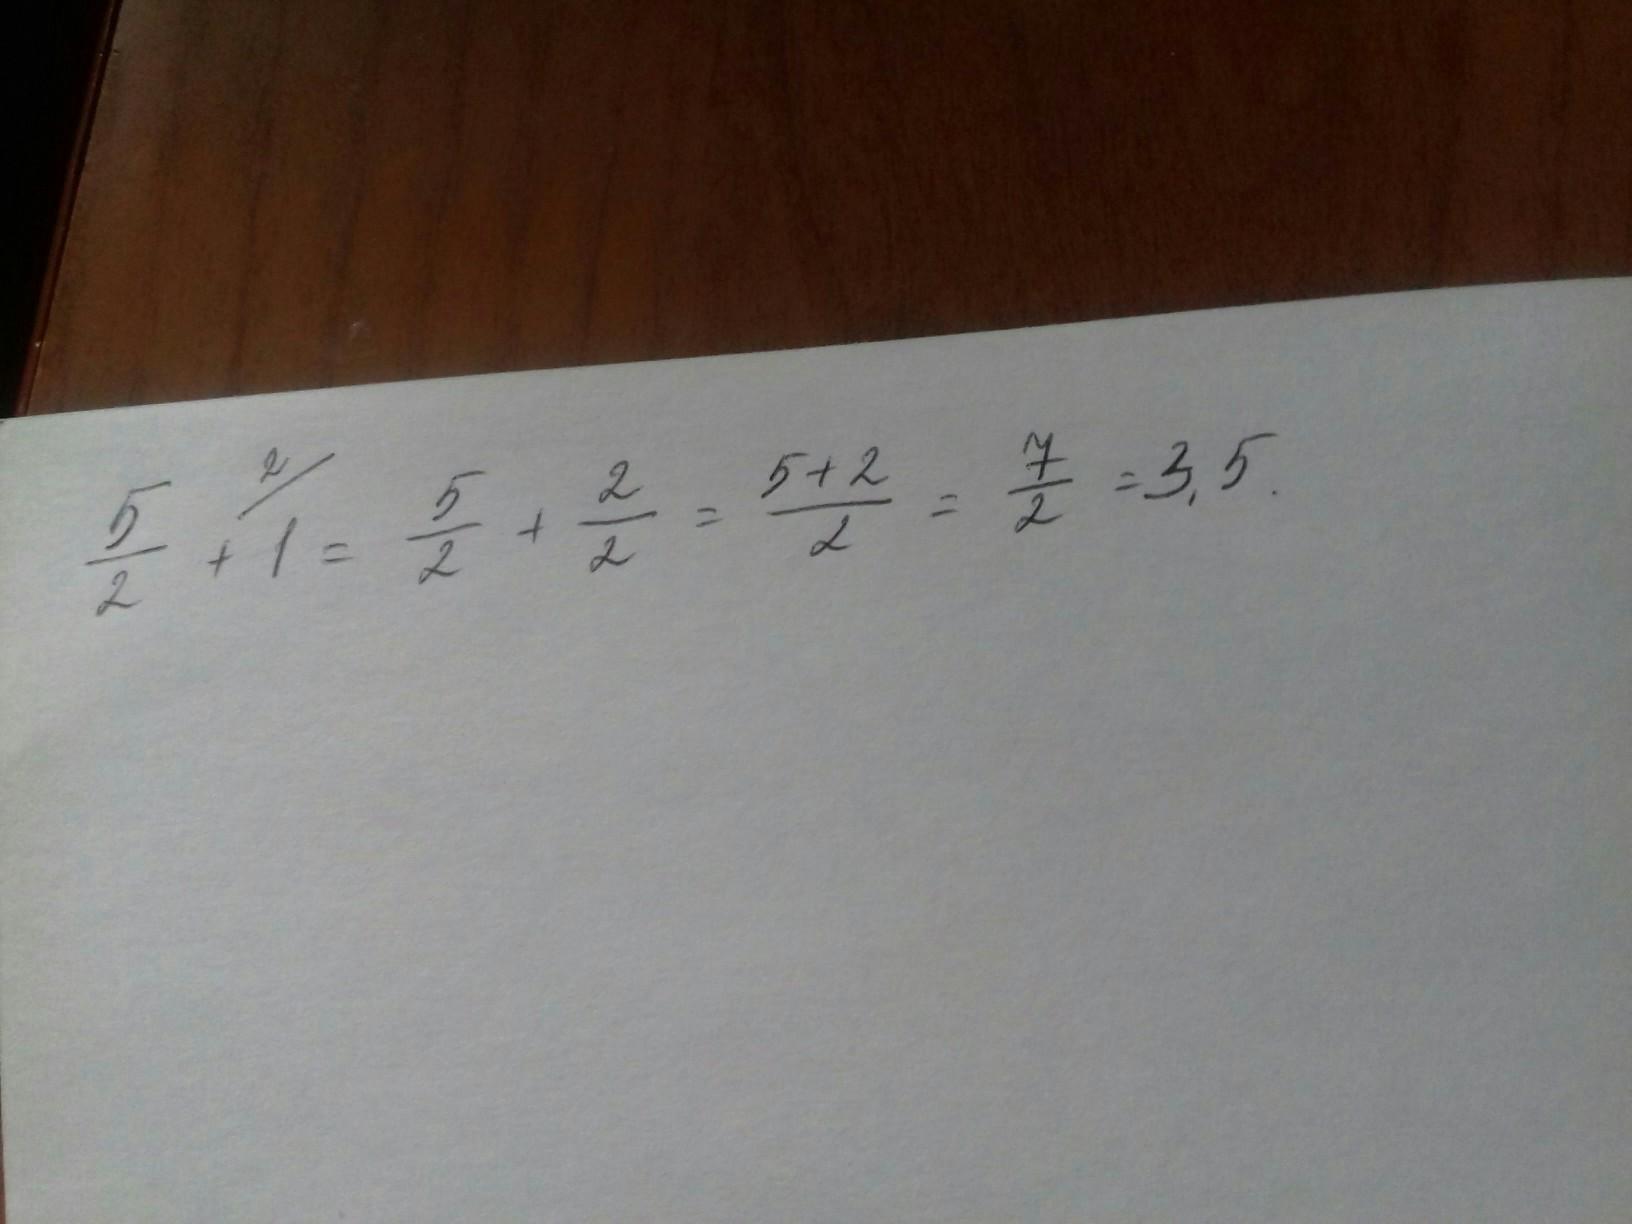 5/2 + 1 2/ = 5/2 + 2/2 = 5+2/2 = 7/2 = 3,5.